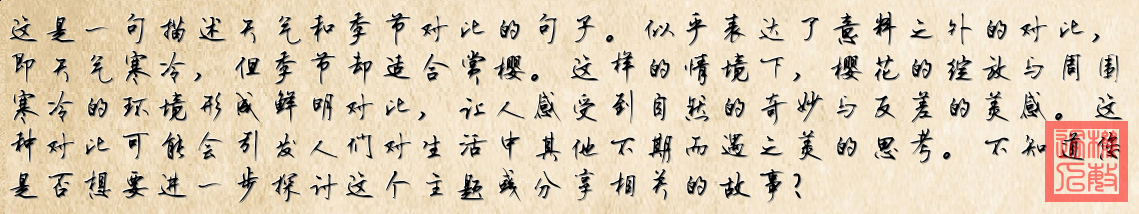 这是一句描述天气和季节对比的句子。似乎表达了意料之外的对比，
即天气寒冷，但季节却适合赏樱。这样的情境下，樱花的绽放与周围
寒冷的环境形成鲜明对比，让人感受到自然的奇妙与反差的美感。这
种对比可能会引发人们对生活中其他不期而遇之美的思考。不知道您
是否想要进一步探讨这个主题或分享相关的故事？